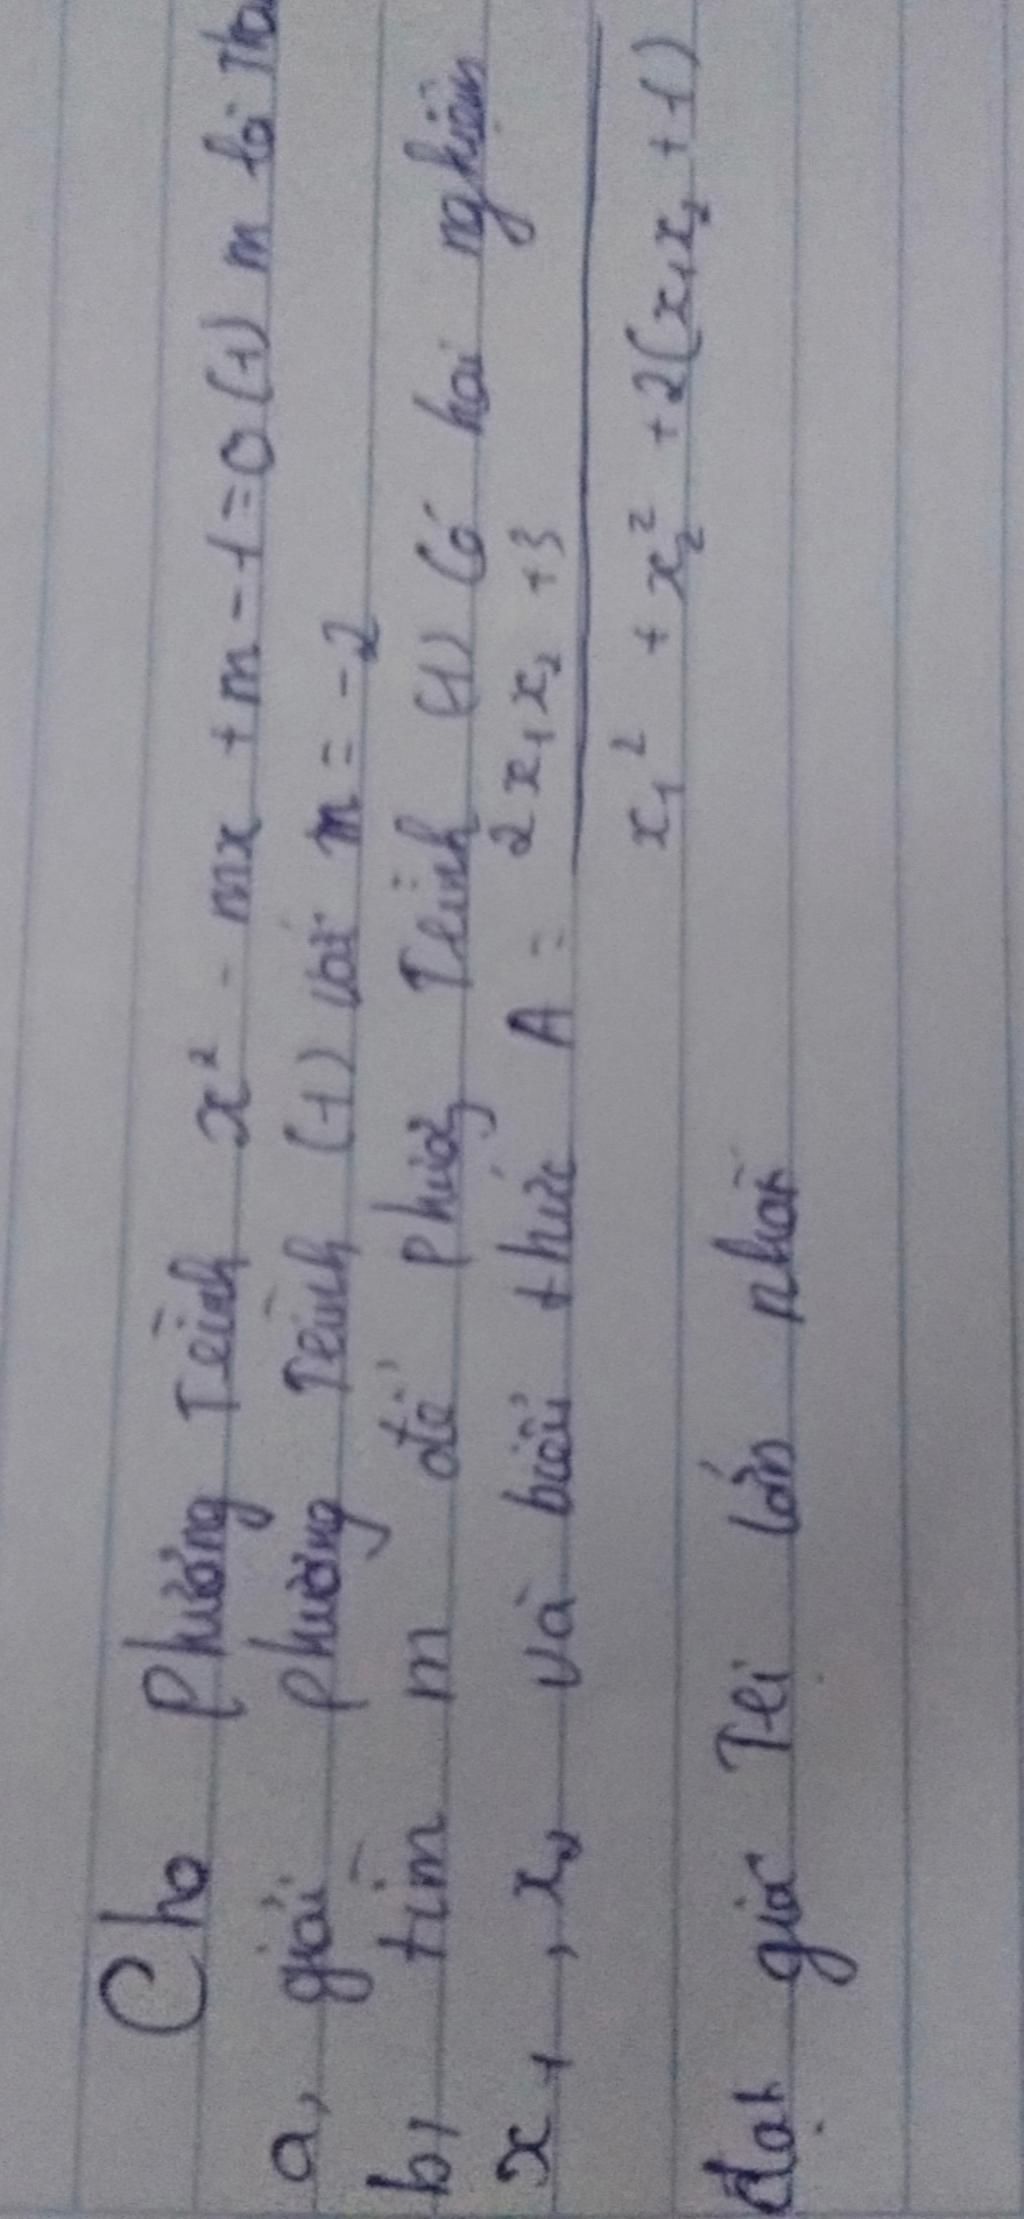 Cho phương trình x² - mx + m - 1 = 0 (1) m là tha
a, giải phương trình (1) với m = -2
b, tìm m để phươg trình (1) có hai nghiệm
x₁, x₂ và biểu thức A = 2x₁x₂ + 3
x₁² + x₂² + 2(x₁x₂ + 1)
đạt giá trị lớn nhất